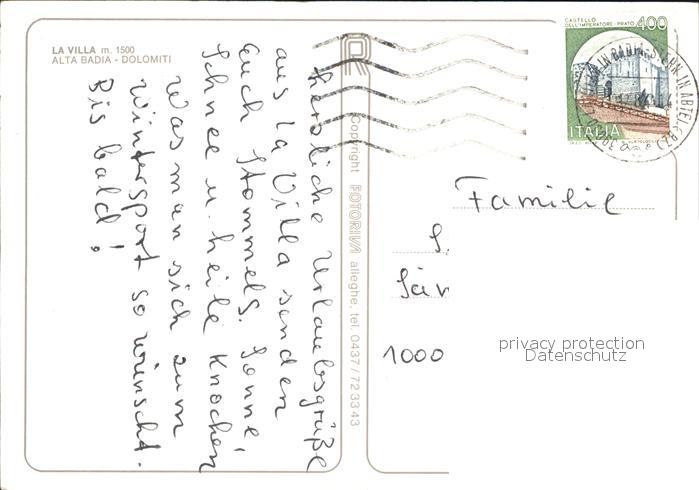 LA VILLA m. 1500
ALTA BADIA - DOLOMITI
herzliche Urlaubsgrüße
aus La Villa senden
Euch Stommels. Sonne,
Schnee u. heile Knochen
was man sich zum
Wintersport so wünscht.
Bis bald!
Copyright FOTORIVA alleghe, tel. 0437/723343
CASTELLO
DELL'IMPERATORE - PRATO
400
ITALIA
Familie
S.
1000
privacy protection
Datenschutz